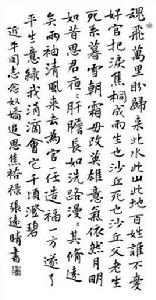 魂飛萬里盼歸來此水此山此地百姓誰不愛
好官把淚焦桐成雨生也沙丘死也沙丘父老生
死系暮雪朝霜毋改英雄意氣依然月明
如昔思君夜夜肝膽長如洗路漫漫其修遠
矣兩袖清風來去為官一任造福一方遂了
平生意綠我涓滴會它千頃澄碧
近平同志念奴嬌追思焦裕祿 張書